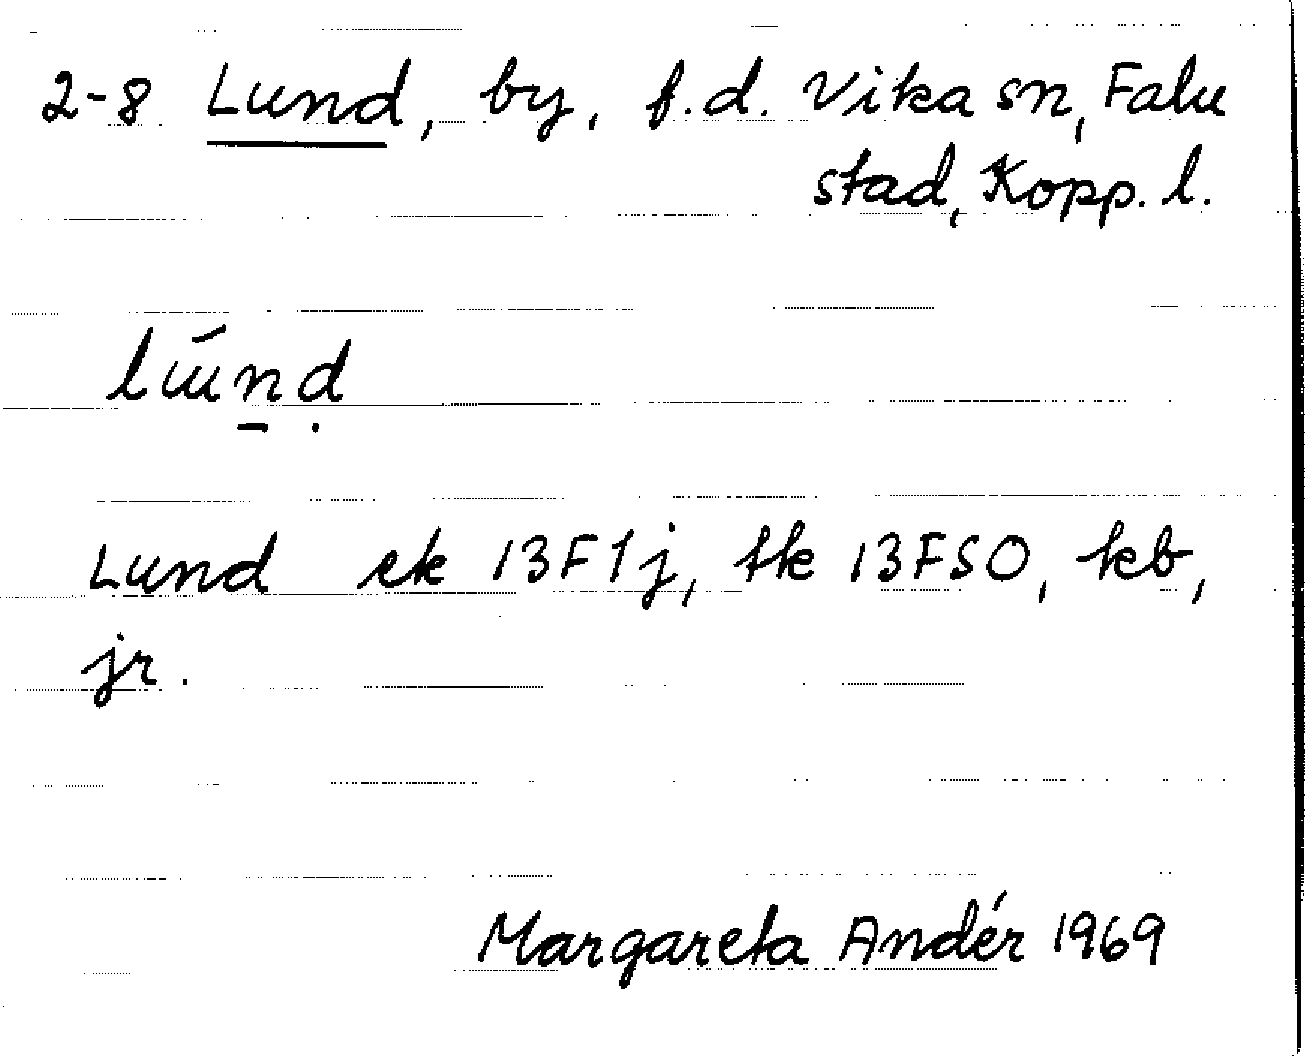 2-8 Lund, by, f.d. Vika sn, Falu
stad, Kopp. l.
lúnd
Lund ek 13F1j, tk 13FSO, kb,
jr.
Margareta Andér 1969